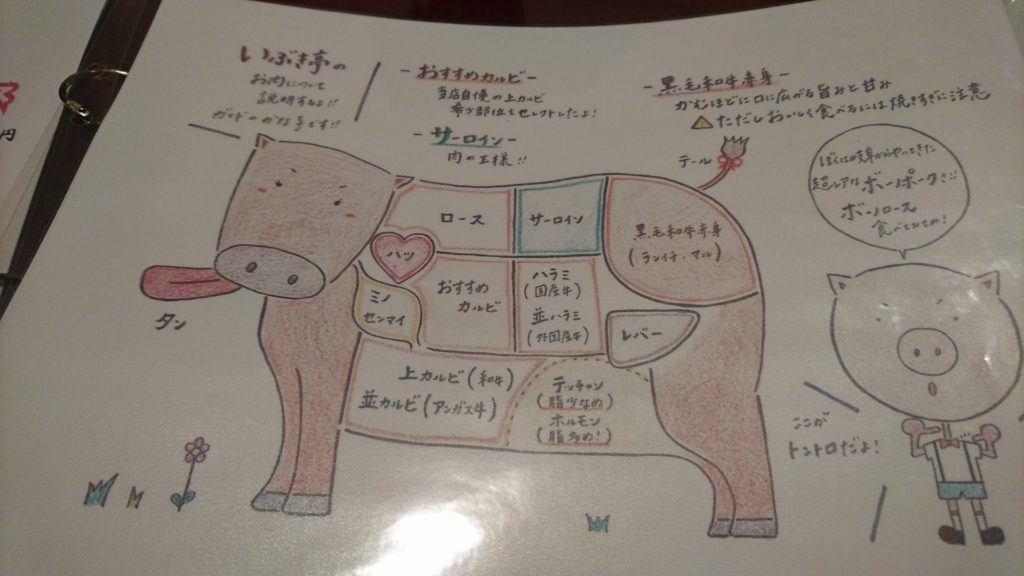 いぶき亭の
お肉について
説明するよ!!
ガイドのかな手です!!
- おすすめカルビ -
当店自慢の上カルビ
希少部位もセレクトしたよ!
- サーロイン -
肉の王様!!
- 黒毛和牛赤身 -
かむほどに口に広がる旨みと甘み
⚠ただしおいしく食べるには焼きすぎに注意
テール
ぼくは岐阜からやってきた
超レアなボーノポークさ!!
ボーノロース
食べてみてね!
ロース
サーロイン
黒毛和牛赤身
(ランイチ・マル)
ハツ
ミノ
センマイ
おすすめ
カルビ
ハラミ
(国産牛)
並ハラミ
(外国産牛)
レバー
タン
上カルビ(和牛)
並カルビ(アンガス牛)
テッチャン
(脂少なめ)
ホルモン
(脂多め!)
ここが
トントロだよ!
円